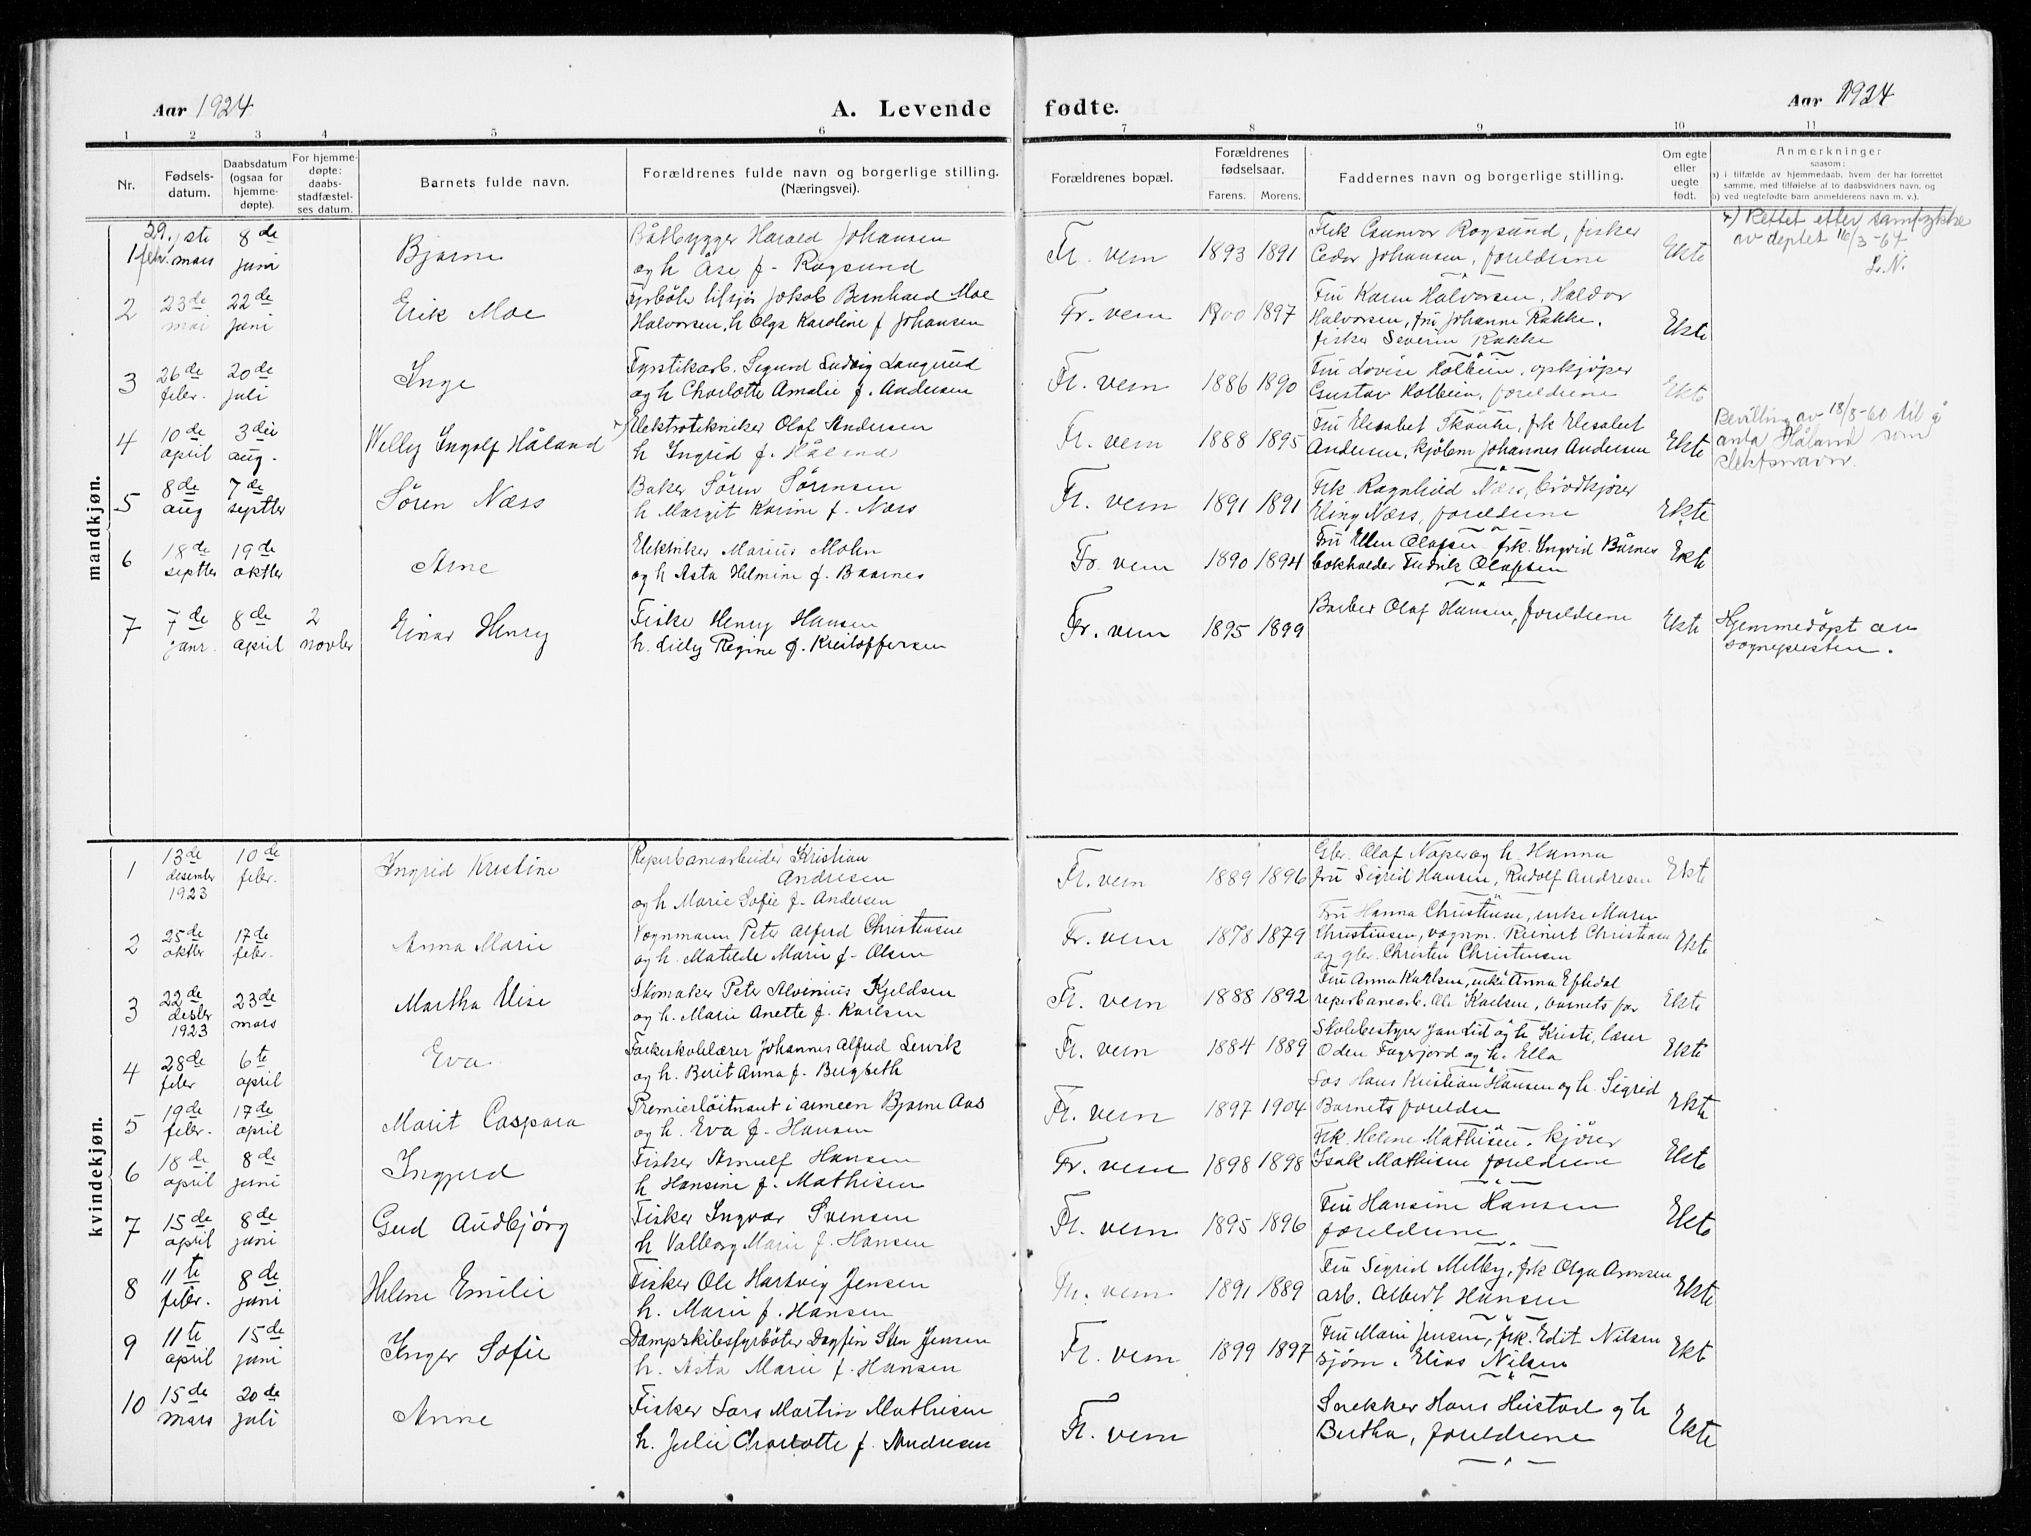 Aar 1924
A. Levende fødte.
Aar 1924
1 2 3 4 5 6 7 8 9 10 11
Nr.
Fødsels-
datum.
Daabsdatum
(ogsaa for
hjemme-
døpte).
For hjemme-
døpte:
daabs-
stadfæstel-
ses datum.
Barnets fulde navn.
Forældrenes fulde navn og borgerlige stilling.
(Næringsvei).
Forældrenes bopæl.
Forældrenes
fødselsaar.
Farens. Morens.
Faddernes navn og borgerlige stilling.
Om egte
eller
uegte
født.
Anmerkninger
saasom:
a) i tilfælde av hjemmedaab, hvem der har forrettet
samme, med tilføielse af to daabsvidners navn, og
b) ved uegtefødte barn anmelderens navn m. v.).
mandkjøn.
1 29. febr. mars 8de juni Bjarne
Båtbygger Harald Johansen
og h Åse f. Ragsund
Fr. vern 1893 1891
Frk Gunvor Ragsund, fisker
Johansen, foreldrene
Ekte
x) Rettet etter samtykke
av deptet 16/3-64
L.N.
2 23de mai 22de juni Erik Moe
Fyrbøter Jakob Bernhard Moe
Halvorsen, h Olga Karoline f Johansen
Fr. vern 1900 1897
Fru Karen Halvorsen, Haldor
Halvorsen, fru Johanne Rakke,
fisker Severin Rakke
Ekte
3 26de febr. 20de juli Inge
Fyrstikarb. Sigurd Ludvig Langrud
og h Charlotte Amalie f. Andersen
Fr. vern 1886 1890
Fru Lovise Kolbein, opkjøper
Gustav Kolbein, foreldrene
Ekte
4 10de april 3die aug. Welly Ingolf Håland
Elektrotekniker Olaf Andersen
h Ingrid f. Håland
Fr. vern 1888 1895
Fru Elisabet, frk Elisabet
Andersen, kjøbm Johannes Andersen
Ekte
Bevilling av 18/8-60 til å
anta Håland som
slektsnavn.
5 8de aug 7de septber Søren Næss
Baker Søren Sørensen
h Margit Karine f. Næss
Fr. vern 1891 1891
Frk. Ragnhild Næss, brødkjører
Eling Næss, foreldrene
Ekte
6 18de septber 19de oktber Arne
Elektriker Marius Mohn
og h Asta Helmine f. Baarnes
Fr. vern 1890 1894
Fru Ellen Olafsen, frk. Ingrid Bårnes
bokholder Fredrik Olafsen
Ekte
7 7de janr. 8de april 2 novber Einar Henry
Fisker Henry Hansen
h. Lilly Regine f. Kristoffersen
Fr. vern 1895 1899
Barber Olaf Hansen, foreldrene
Ekte
Hjemmedøpt av
sognepresten.
kvindekjøn.
1 13de desember 1923 10de febr. Ingrid Kristine
Reperbanearbeider Kristian
Andresen
og h Marie Sofie f. Andersen
Fr. vern 1889 1896
Gbr. Olaf Naper og h. Hanna
fru Sigrid Hansen, Rudolf Andresen
Ekte
2 25de oktber 17de febr. Anna Marie
Vognmann Peter Alfred Christensen
og h. Matilde Marie f. Olsen
Fr. vern 1878 1879
Fru Hanna Christensen, enke Maren
Christensen, vognm. Reinert Christensen
og gbr. Christen Christensen
Ekte
3 22de desber 1923 23de mars Martha Elise
Skomaker Peter Alvinius Kjeldsen
og h. Marie Anette f. Karlsen
Fr. vern 1888 1892
Fru Anna Karlsen, enke Anna Eftedal
reperbanearb. Ole Karlsen, barnets far
Ekte
4 28de febr 6te april Eva
Folkeskolelærer Johannes Alfred Lervik
og h. Berit Anna f. Bergseth
Fr. vern 1884 1889
Skolebestyrer Jan Lid og h. Kirste, lærer
Oden Fagerjord og h. Ella
Ekte
5 19de febr. 17de april Marit Caspara
Premierløitnant i armeen Bjarne Aas
og h. Eva f. Hansen
Fr. vern 1897 1904
Los Hans Kristian Hansen og h. Sigrid
Barnets foreldre
Ekte
6 18de april 8de juni Ingjerd
Fisker Arnulf Hansen
h Hansine f. Mathisen
Fr. vern 1898 1898
Frk. Helene Mathisen. kjører
Isak Mathisen foreldrene
Ekte
7 15de april 8de juni Gud Audbjørg
Fisker Ingvar Svensen
h Valborg Marie f. Hansen
Fr. vern 1895 1896
Fru Hansine Hansen
foreldrene
Ekte
8 11te febr. 8de juni Helene Emilie
Fisker Ole Hartvig Jensen
h. Marie f. Hansen
Fr. vern 1891 1889
Fru Sigrid Melby, frk Olga Aronsen
arb. Albert Hansen
Ekte
9 11te april 15de juni Inger Sofie
Dampskibsfyrbøter Dagfin Sten Jensen
h. Asta Marie f. Hansen
Fr. vern 1899 1897
Fru Marie Jensen, frk. Edit Nilsen
sjøm. Elias Nilsen
Ekte
10 15de mars 20de juli Anne
Fisker Lars Martin Mathisen
h. Julie Charlotte f. Andresen
Fr. vern
Snekker Hans Heistad og h
Bertha, foreldrene
Ekte